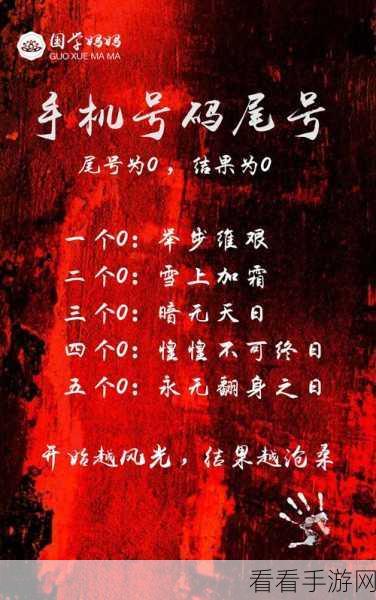 国学妈妈
GUO XUE MA MA
手机号码尾号
尾号为0，结果为0
一个0：举步维艰
二个0：雪上加霜
三个0：暗无天日
四个0：惶惶不可终日
五个0：永无翻身之日
开始越风光，结果越沧桑
看看手游网